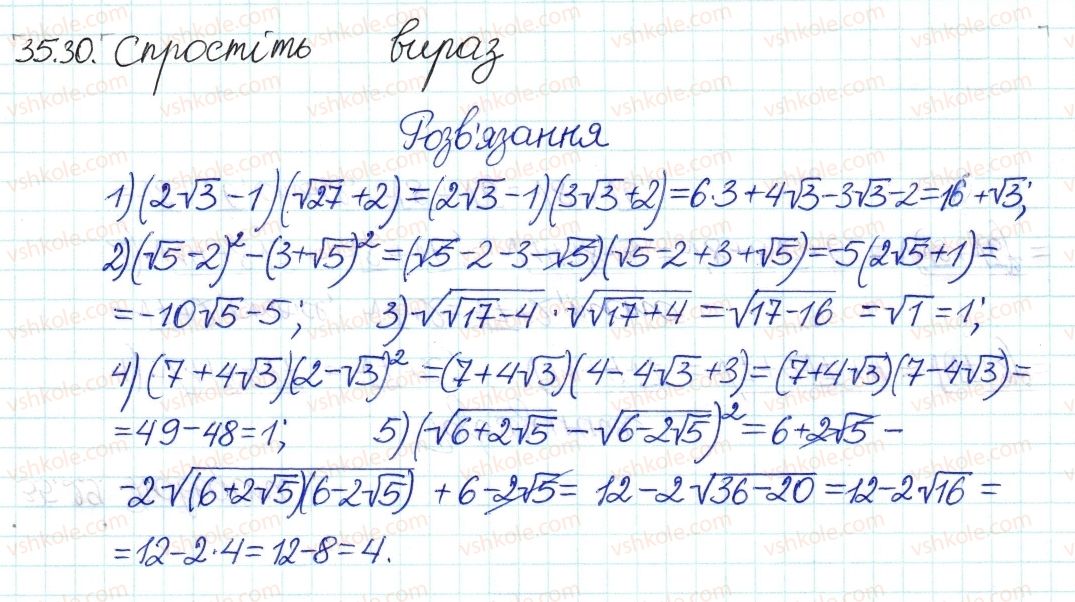 35.30. Спростіть вираз
Розв'язання
1) (2√3 - 1)(√27 + 2) = (2√3 - 1)(3√3 + 2) = 6·3 + 4√3 - 3√3 - 2 = 16 + √3;
2) (√5 - 2)² - (3 + √5)² = (√5 - 2 - 3 - √5)(√5 - 2 + 3 + √5) = -5(2√5 + 1) =
= -10√5 - 5; 3) √(√17 - 4) · √(√17 + 4) = √(17 - 16) = √1 = 1;
4) (7 + 4√3)(2 - √3)² = (7 + 4√3)(4 - 4√3 + 3) = (7 + 4√3)(7 - 4√3) =
= 49 - 48 = 1; 5) (√(6 + 2√5) - √(6 - 2√5))² = 6 + 2√5 -
- 2√((6 + 2√5)(6 - 2√5)) + 6 - 2√5 = 12 - 2√(36 - 20) = 12 - 2√16 =
= 12 - 2·4 = 12 - 8 = 4.